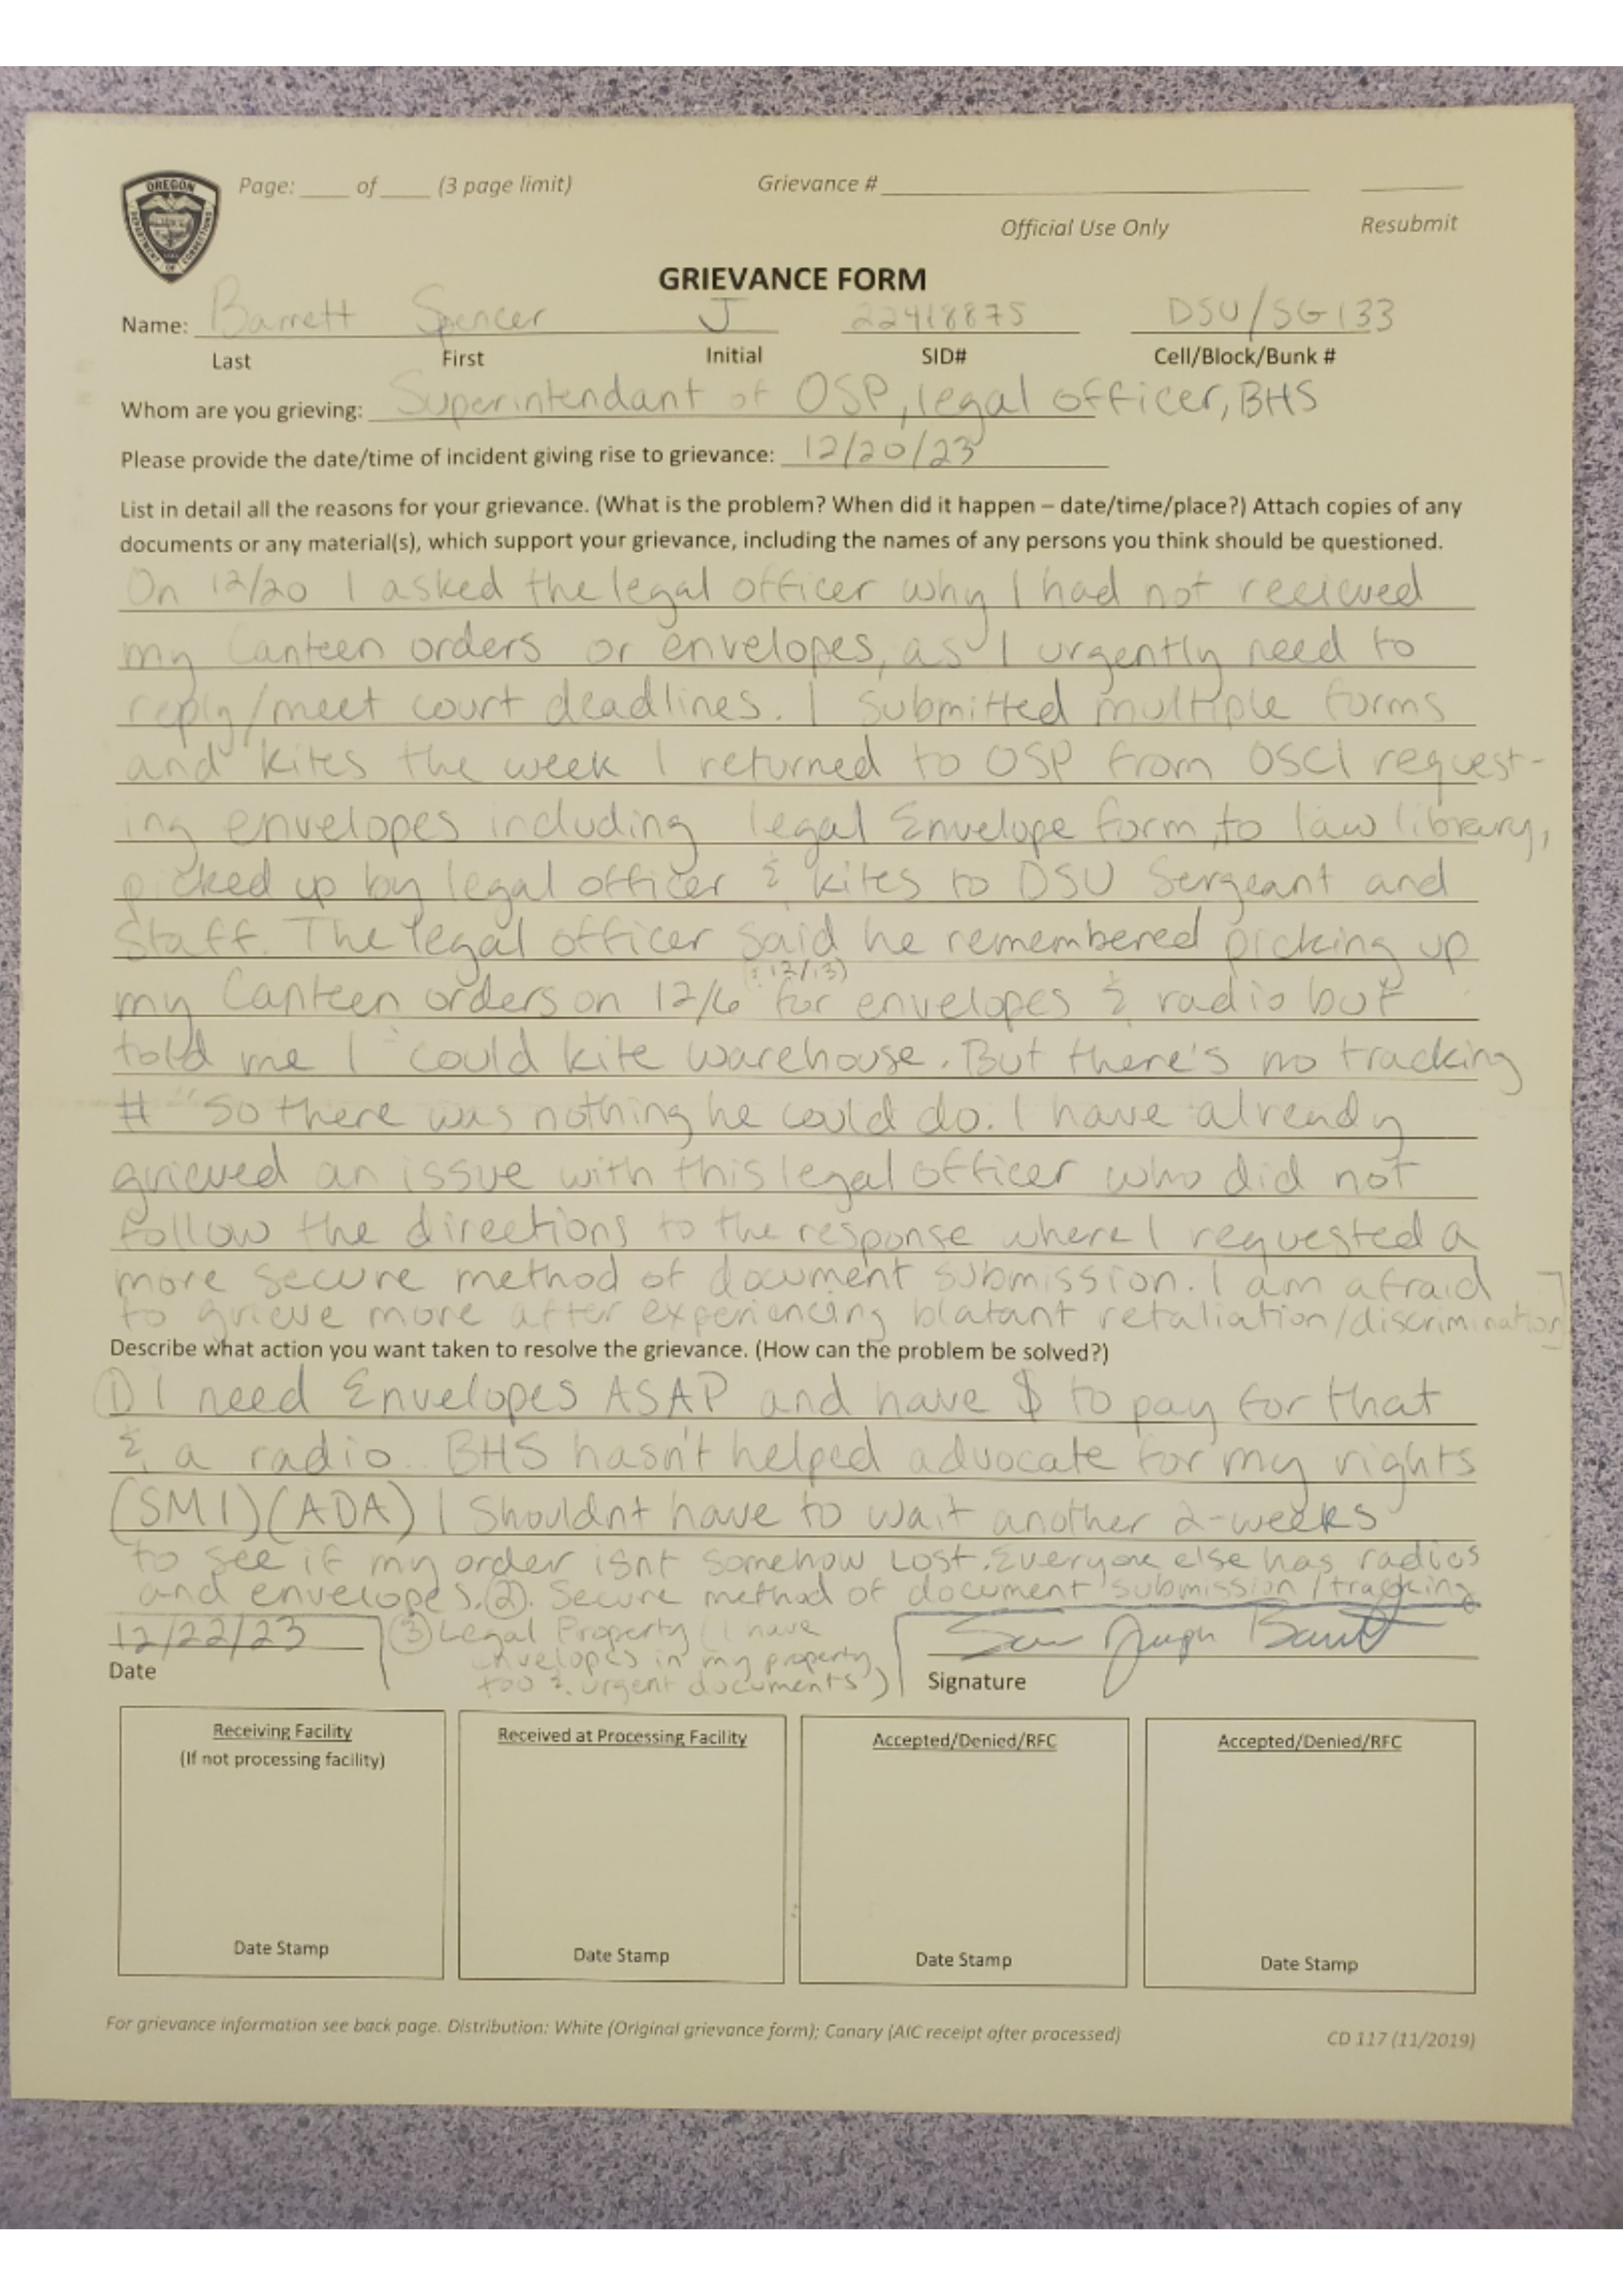 OREGON
DEPARTMENT OF CORRECTIONS
Page: ____ of ____ (3 page limit)
Grievance # ____
Official Use Only
Resubmit
GRIEVANCE FORM
Name: Barrett Spencer J 22418875 DSU/SG133
Last First Initial SID# Cell/Block/Bunk #
Whom are you grieving: Superintendant of OSP, legal officer, BHS
Please provide the date/time of incident giving rise to grievance: 12/20/23
List in detail all the reasons for your grievance. (What is the problem? When did it happen – date/time/place?) Attach copies of any
documents or any material(s), which support your grievance, including the names of any persons you think should be questioned.
On 12/20 I asked the legal officer why I had not recieved
my Canteen orders or envelopes, as I urgently need to
reply/meet court deadlines. I submitted multiple forms
and kites the week I returned to OSP from OSCI request-
ing envelopes including legal Envelope form, to law library,
picked up by legal officer & kites to DSU Sergeant and
Staff. The legal officer said he remembered picking up
(& 12/13)
my Canteen orders on 12/6 for envelopes & radio but
told me I could kite warehouse. But there's no tracking
# "so there was nothing he could do. I have already
grieved an issue with this legal officer who did not
follow the directions to the response where I requested a
more secure method of document submission. I am afraid
to grieve more after experiencing blatant retaliation/discrimination]
Describe what action you want taken to resolve the grievance. (How can the problem be solved?)
① I need Envelopes ASAP and have $ to pay for that
& a radio. BHS hasn't helped advocate for my rights
(SMI)(ADA) I Shouldnt have to wait another 2-weeks
to see if my order isnt somehow Lost. Everyone else has radios
and envelopes. ②. Secure method of document submission/tracking
12/22/23 ③ Legal Property (I have
envelopes in my property
too & urgent documents)
Date
Signature
Receiving Facility
(If not processing facility)
Date Stamp
Received at Processing Facility
Date Stamp
Accepted/Denied/RFC
Date Stamp
Accepted/Denied/RFC
Date Stamp
For grievance information see back page. Distribution: White (Original grievance form); Canary (AIC receipt after processed)
CD 117 (11/2019)